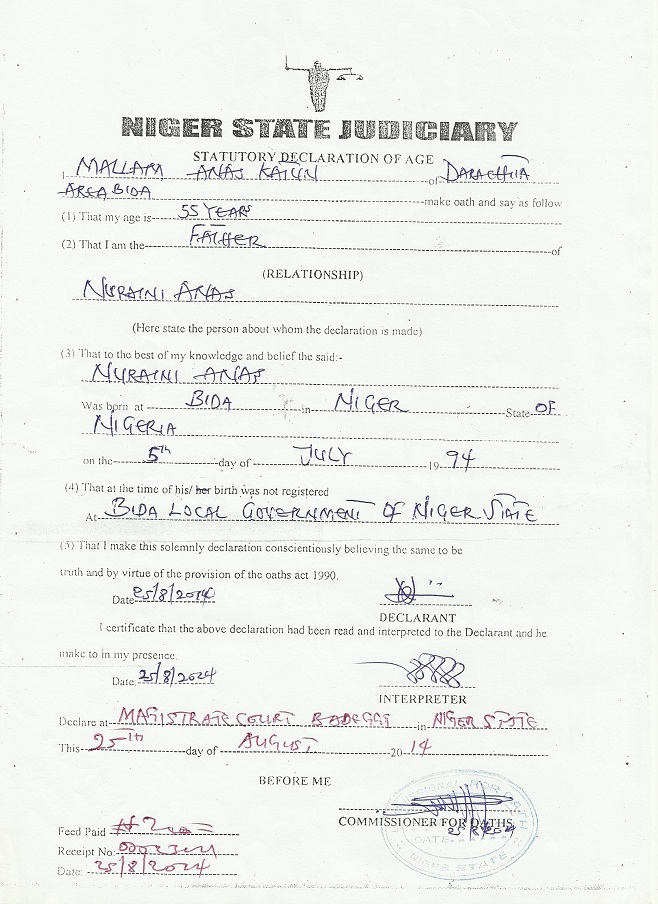 NIGER STATE JUDICIARY
STATUTORY DECLARATION OF AGE
I MALLAM ANAS KATUN of DARACHITA
AREA BIDA make oath and say as follow
(1) That my age is 55 YEARS
(2) That I am the FATHER of
(RELATIONSHIP)
NURAINI ANAS
(Here state the person about whom the declaration is made)
(3) That to the best of my knowledge and belief the said:-
NURAINI ANAS
Was born at BIDA in NIGER State OF
NIGERIA
on the 5th day of JULY 19 94
(4) That at the time of his/ her birth was not registered
At BIDA LOCAL GOVERNMENT OF NIGER STATE
(5) That I make this solemnly declaration conscientiously believing the same to be
truth and by virtue of the provision of the oaths act 1990.
Date 25/8/2014
DECLARANT
I certificate that the above declaration had been read and interpreted to the Declarant and he
make to in my presence.
Date: 25/8/2014
INTERPRETER
Declare at MAGISTRATE COURT BADEGGI in NIGER STATE
This 25th day of AUGUST 20 14
BEFORE ME
COMMISSIONER FOR OATHS
Feed Paid
Receipt No:
Date: 25/8/2014
DATE
NIGER STATE